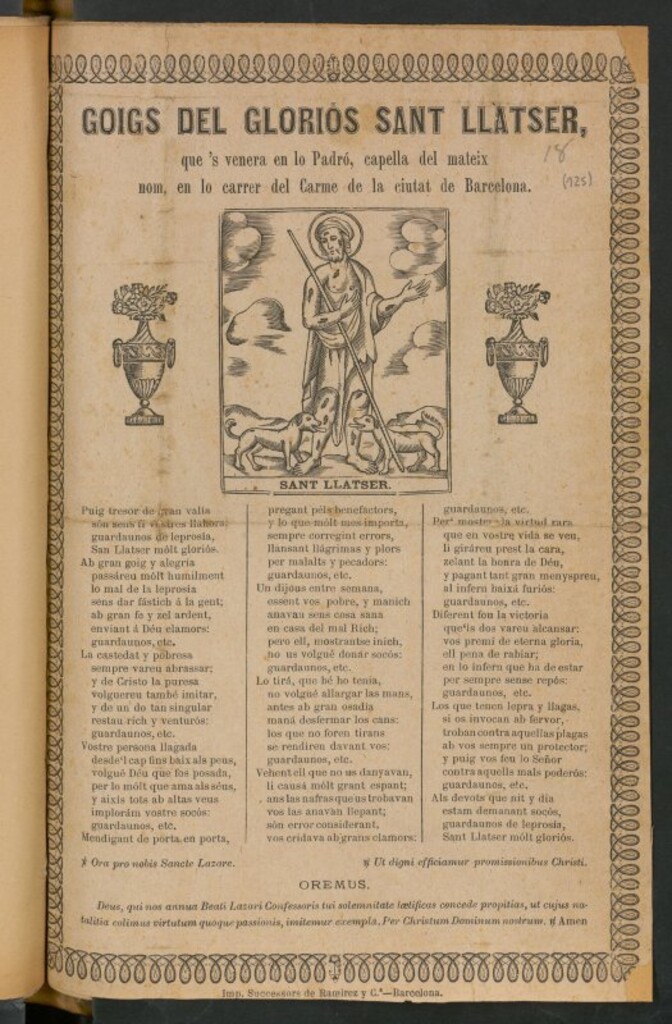 GOIGS DEL GLORIÓS SANT LLATSER,
que 's venera en lo Padró, capella del mateix
nom, en lo carrer del Carme de la ciutat de Barcelona.
18
(125)
SANT LLATSER.
Puig tresor de gran valía
són sens fí vostres llahors:
guardaunos de leprosía,
San Llatser mólt gloriós.
Ab gran goig y alegria
passáreu mólt humilment
lo mal de la leprosía
sens dar fástich á la gent;
ab gran fe y zel ardent,
enviant á Déu clamors:
guardaunos, etc.
La castedat y pobresa
sempre vareu abrassar;
y de Cristo la puresa
volguereu també imitar,
y de un do tan singular
restau rich y venturós:
guardaunos, etc.
Vostre persona llagada
desde'l cap fins baix als peus,
volgué Déu que fos posada,
per lo mólt que ama als séus,
y aixis tots ab altas veus
implorám vostre socós:
guardaunos, etc.
Mendigant de porta en porta,
pregant péls benefactors,
y lo que mólt mes importa,
sempre corregint errors,
llansant llágrimas y plors
per malalts y pecadors:
guardaunos, etc.
Un dijous entre semana,
essent vos pobre, y manich
anavau sens cosa sana
en casa del mal Rich;
pero ell, mostrantse inich,
no us volgué donar socós:
guardaunos, etc.
Lo tirá, que bé ho tenia,
no volgué allargar las mans,
antes ab gran osadía
maná desfermar los cans:
los que no foren tirans
se rendiren davant vos:
guardaunos, etc.
Vehent ell que no us danyavan,
li causá mólt grant espant;
ans las nafras que us trobavan
vos las anavan llepant;
són error considerant,
vos cridava ab grans clamors:
guardaunos, etc.
Per' mostrar la virtud rara
que en vostre vida se veu,
li giráreu prest la cara,
zelant la honra de Déu,
y pagant tant gran menyspreu,
al infern baixá furiós:
guardaunos, etc.
Diferent fou la victoria
que'ls dos vareu alcansar:
vos premi de eterna gloria,
ell pena de rabiar;
en lo infern que ha de estar
per sempre sense repós:
guardaunos, etc.
Los que tenen lepra y llagas,
si os invocan ab fervor,
troban contra aquellas plagas
ab vos sempre un protector;
y puig vos feu lo Señor
contra aquells mals poderós:
guardaunos, etc.
Als devots que nit y dia
estam demanant socós,
guardaunos de leprosía,
Sant Llatser mólt gloriós.
℣ Ora pro nobis Sancte Lazare.
℟ Ut digni efficiamur promissionibus Christi.
OREMUS.
Deus, qui nos annua Beati Lazari Confessoris tui solemnitate lætificas concede propitias, ut cujus na-
talitia colimus virtutum quoque passionis, imitemur exempla. Per Christum Dominum nostrum. ℟ Amen
Imp. Successors de Ramirez y C.ª—Barcelona.